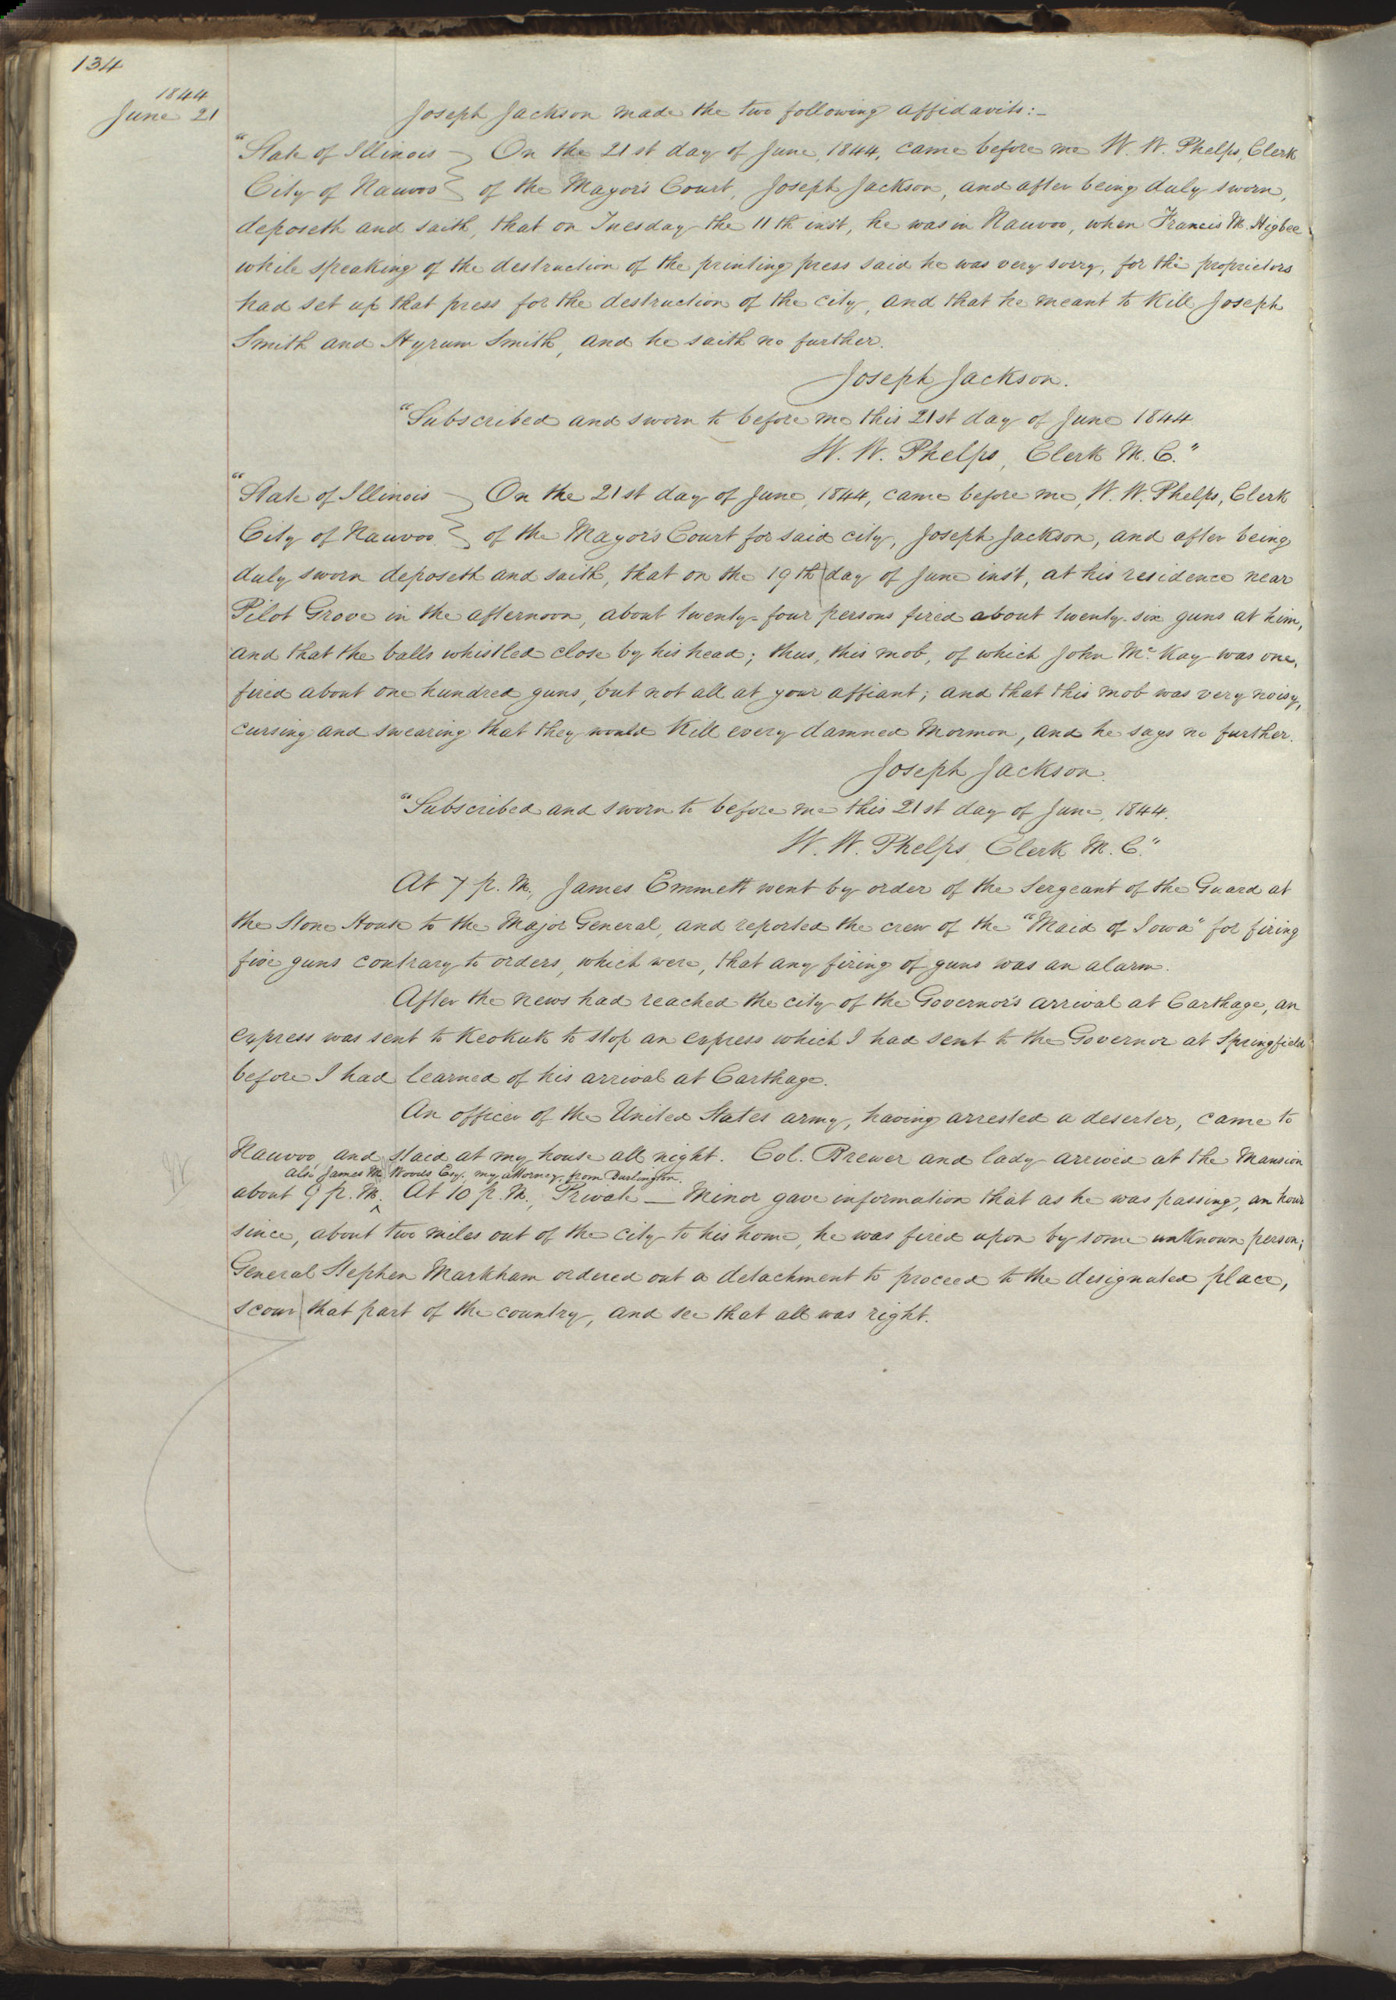 134
1844
June 21
Joseph Jackson made the two following affidavits:—
"State of Illinois } On the 21st day of June, 1844, came before me W. W. Phelps, Clerk
City of Nauvoo } of the Mayor's Court, Joseph Jackson, and after being duly sworn,
deposeth and saith, that on Tuesday the 11th inst, he was in Nauvoo, when Francis M. Higbee
while speaking of the destruction of the printing press said he was very sorry, for the proprietors
had set up that press for the destruction of the city, and that he meant to kill Joseph
Smith and Hyrum Smith, and he saith no further.
Joseph Jackson.
"Subscribed and sworn to before me this 21st day of June 1844
W. W. Phelps, Clerk M. C."
"State of Illinois } On the 21st day of June, 1844, came before me, W. W. Phelps, Clerk
City of Nauvoo } of the Mayor's Court for said city, Joseph Jackson, and after being
duly sworn deposeth and saith, that on the 19th day of June inst, at his residence near
Pilot Grove in the afternoon, about twenty-four persons fired about twenty-six guns at him,
and that the balls whistled close by his head; thus, this mob, of which John Mc. Kay was one,
fired about one hundred guns, but not all at your affiant; and that this mob was very noisy,
cursing and swearing that they would kill every damned Mormon, and he says no further.
Joseph Jackson.
"Subscribed and sworn to before me this 21st day of June, 1844.
W. W. Phelps, Clerk M. C."
At 7 p. M., James Emmett went by order of the Sergeant of the Guard at
the Stone House to the Major General, and reported the crew of the "Maid of Iowa" for firing
five guns contrary to orders, which were, that any firing of guns was an alarm.
After the news had reached the city of the Governor's arrival at Carthage, an
express was sent to Keokuk to stop an express which I had sent to the Governor at Springfield
before I had learned of his arrival at Carthage.
An officer of the United States army, having arrested a deserter, came to
Nauvoo, and staid at my house all night. Col. Brewer and lady arrived at the Mansion
also James M. Woods Esq. my attorney from Burlington.
about 9 p. M. ^ At 10 p. M., Private — Minor gave information that as he was passing, an hour
since, about two miles out of the city to his home, he was fired upon by some unknown person;
General Stephen Markham ordered out a detachment to proceed to the designated place,
scour that part of the country, and see that all was right.